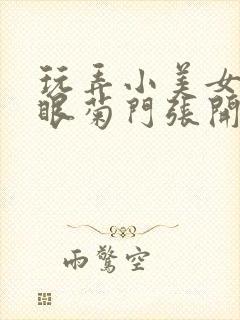 玩弄小美女
眼菊門張開
雨驚空